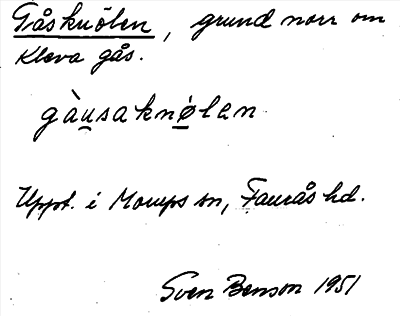 Gåsknölen, grund norr om
Kleva gås.
gàu̲saknø̲̀len
Uppt. i Morups sn, Faurås hd.
Sven Benson 1951